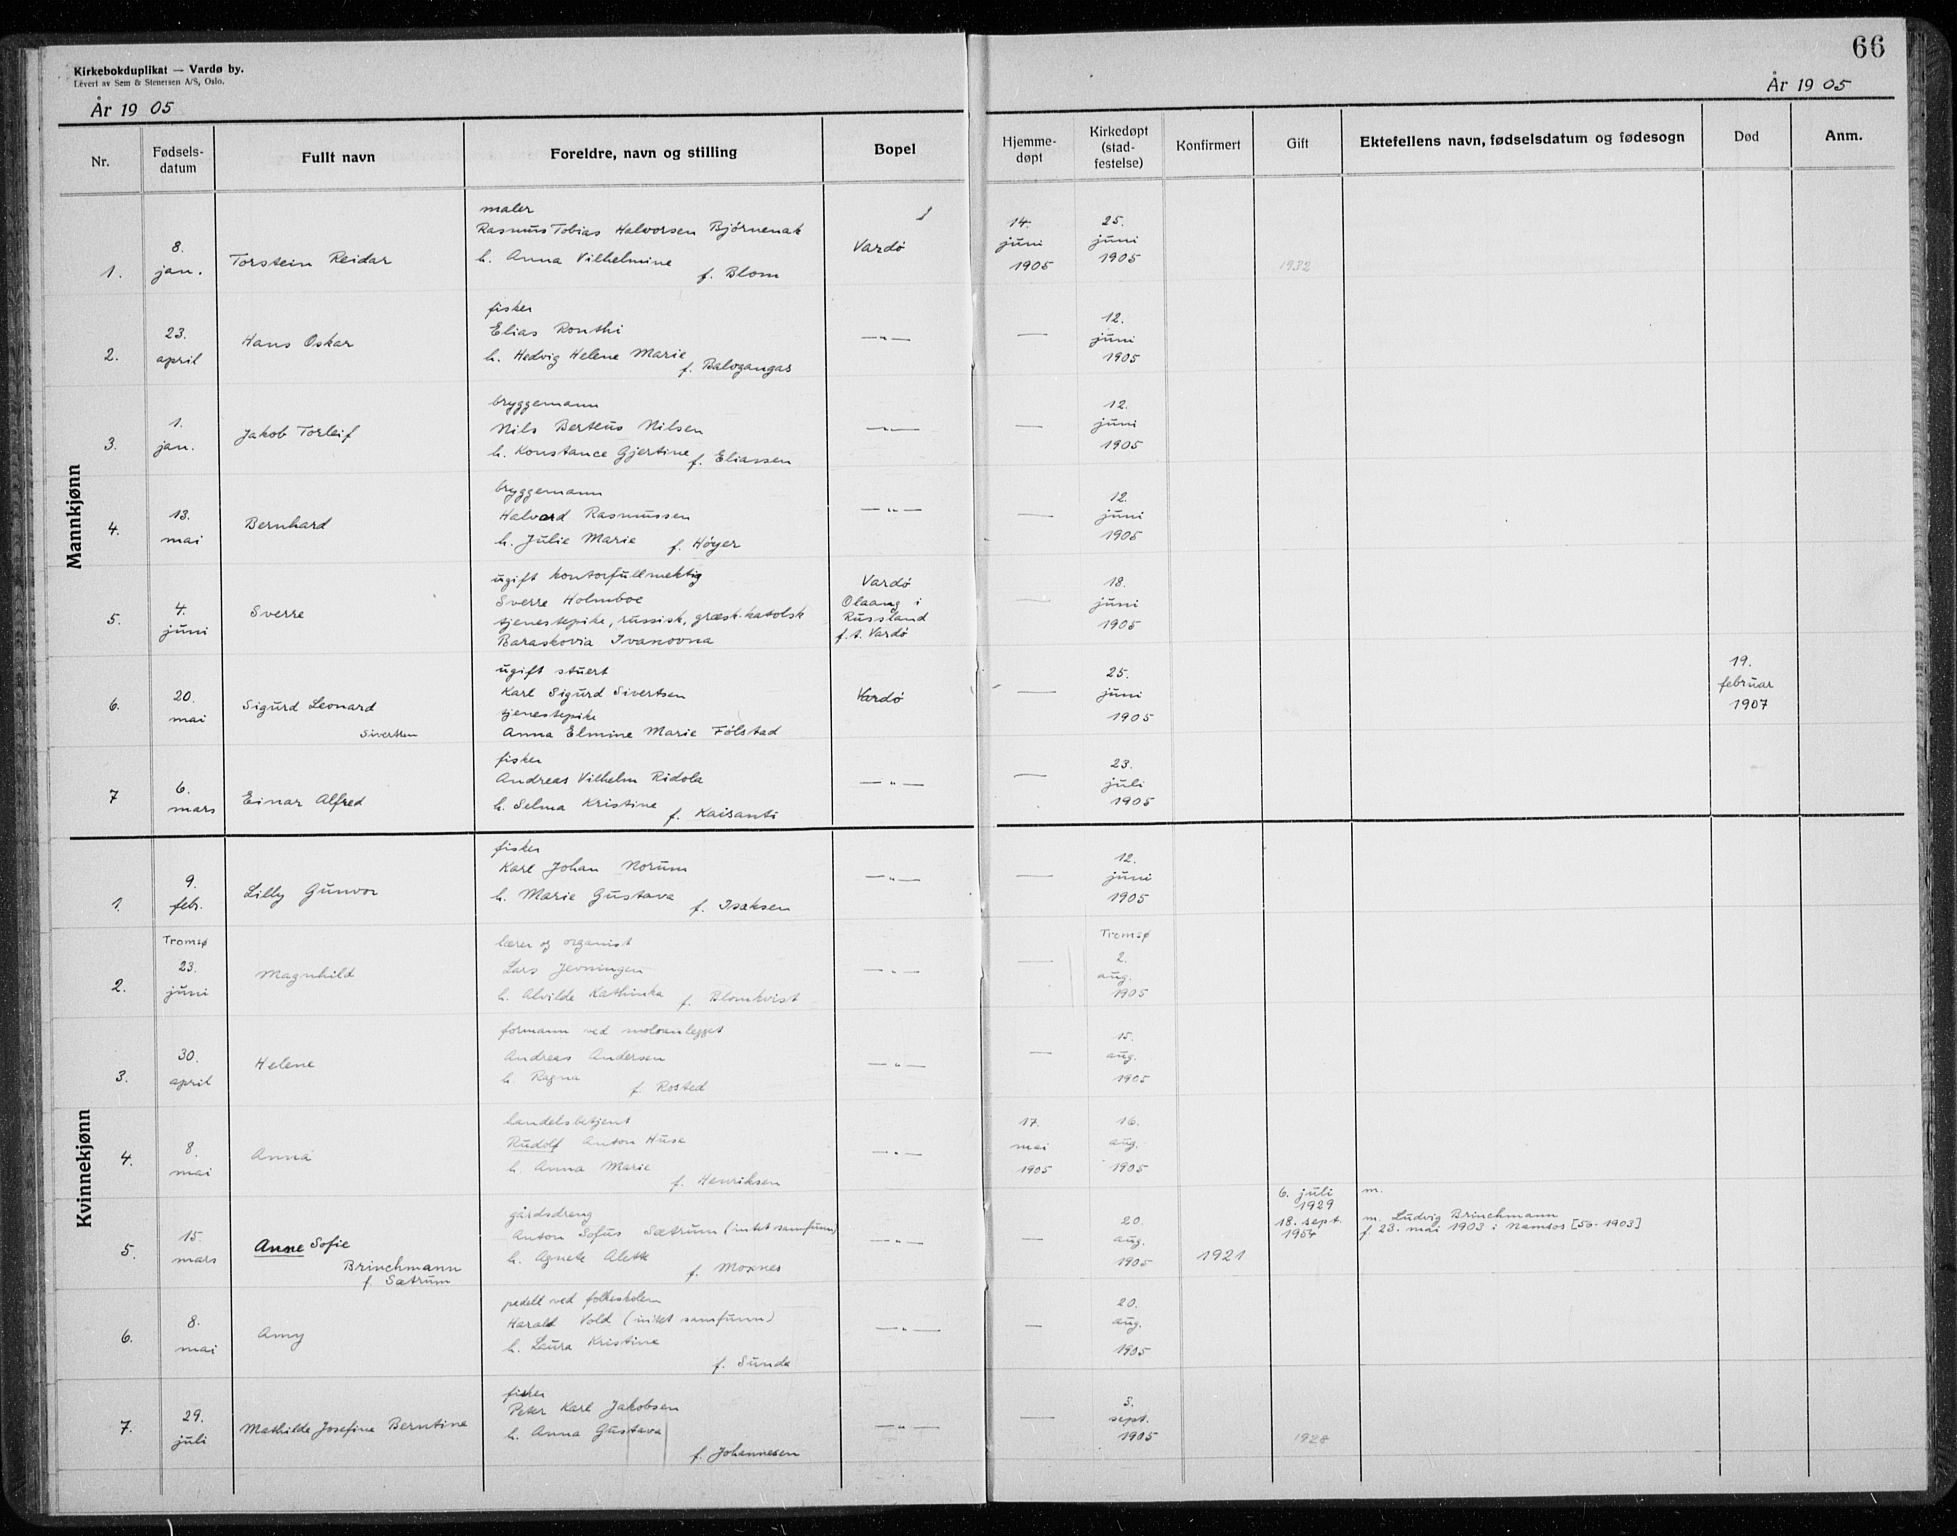 Kirkebokduplikat — Vardø by.
Levert av Sem & Stenersen A/S, Oslo.
66
År 1905
År 1905
Nr.
Fødsels-
datum
Fullt navn
Foreldre, navn og stilling
Bopel
Hjemme-
døpt
Kirkedøpt
(stad-
festelse)
Konfirmert
Gift
Ektefellens navn, fødselsdatum og fødesogn
Død
Anm.
Mannkjønn
1.
8.
jan.
Torstein Reidar
maler
Rasmus Tobias Halvorsen Bjørnenak
h. Anna Vilhelmine
f. Blom
Vardø
14.
juni
1905
25.
juni
1905
1932
2.
23.
april
Hans Oskar
fisker
Elias Ronthi
h. Hedvig Helene Marie
f. Balogangas
— " —
—
12.
juni
1905
3.
1.
jan.
Jakob Torleif
bryggemann
Nils Berteus Nilsen
h. Konstance Gjertine f. Eliassen
— " —
—
12.
juni
1905
4.
13.
mai
Bernhard
bryggemann
Halvard Rasmussen
h. Julie Marie f. Høyer
— " —
—
12.
juni
1905
5.
4.
juni
Sverre
ugift kontorfullmektig
Sverre Holmboe
tjenestepike, russisk, græsk-katolsk
Baraskovia Ivanovna
Vardø
Olaang i
Russland
f.t. Vardø
—
18.
juni
1905
6.
20.
mai
Sigurd Leonard
Sivertsen
ugift stuert
Karl Sigurd Sivertsen
tjenestepike
Anna Elmine Marie Følstad
Vardø
—
25.
juni
1905
19.
februar
1907
7
6.
mars
Einar Alfred
fisker
Andreas Vilhelm Ridola
h. Selma Kristine
f. Kaisanti
— " —
—
23.
juli
1905
Kvinnekjønn
1.
9.
febr.
Lilly Gunvor
fisker
Karl Johan Norum
h. Marie Gustava f. Isaksen
— " —
—
12.
juni
1905
2.
Tromsø
23.
juni
Magnhild
lærer og organist
Lars Jevningen
h. Alvilde Kathinka f. Blomkvist
— " —
—
Tromsø
2.
aug.
1905
3.
30.
april
Helene
formann ved moloanlegget
Andreas Andersen
h. Ragna f. Rosted
— " —
—
15.
aug.
1905
4.
8.
mai
Anna
handelsbetjent
Rudolf Anton Husa
h. Anna Marie
f. Henriksen
— " —
17.
mai
1905
16.
aug.
1905
5.
15.
mars
Anne Sofie
Brinchmann
f. Sætrum
gårdsdreng
Anton Sofus Sætrum (intet samfunn)
h. Agnete Alette
f. Moxnes
— " —
—
20.
aug.
1905
1921
6. juli
1929
18. sept.
1954
m.
m. Ludvig Brinchmann
f. 23. mai 1903 i Namsos [56-1903]
6.
8.
mai
Amy
pedell ved folkeskolen
Harald Vold (intet samfunn)
h. Laura Kristine
f. Sunde
— " —
—
20.
aug.
1905
7.
29.
juli
Mathilde Josefine Berntine
fisker
Peter Karl Jakobsen
h. Anna Gustava
f. Johannesen
— " —
—
3.
sept.
1905
1928